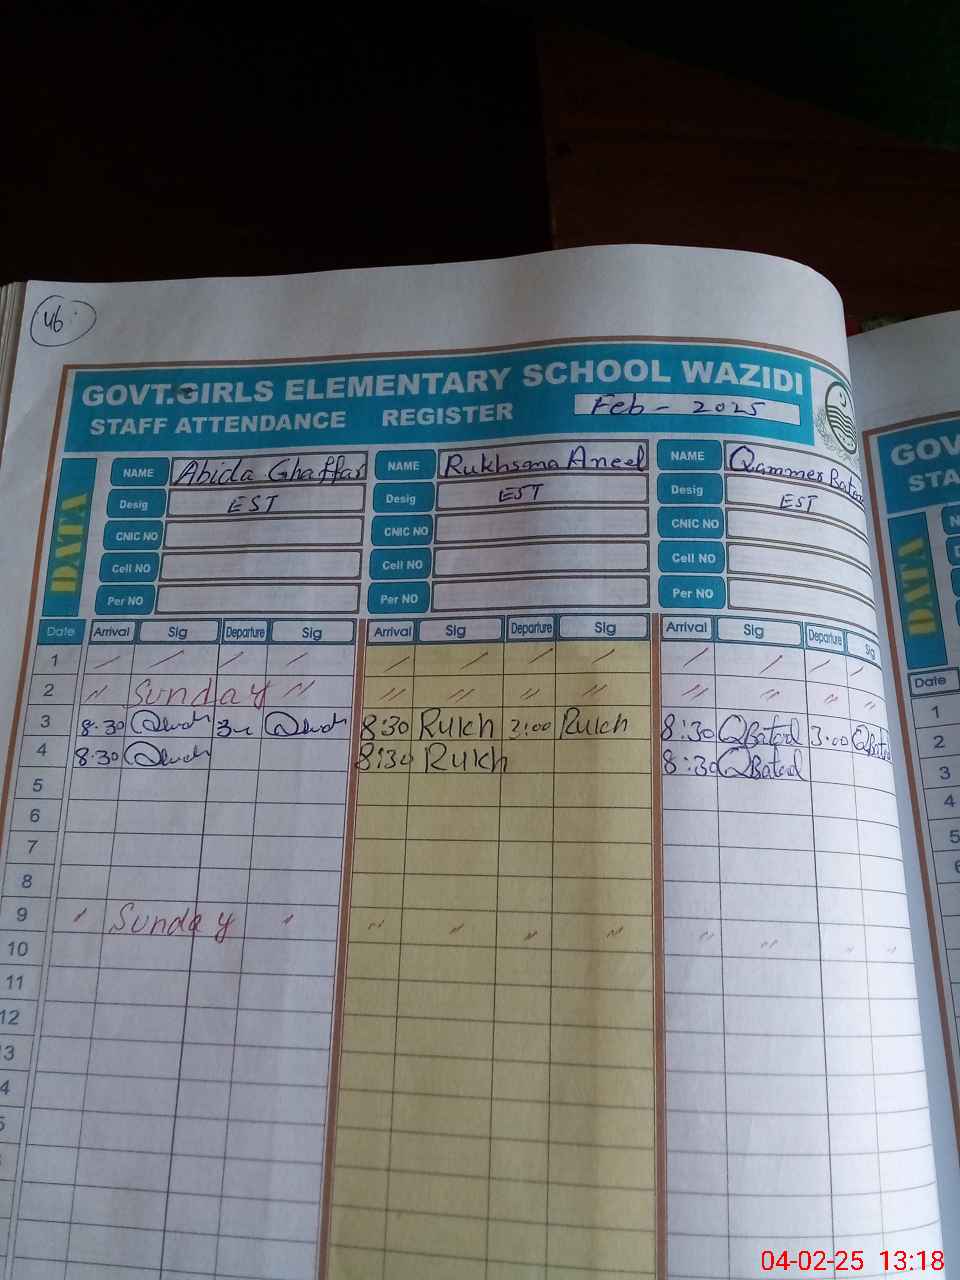 46
GOVT.GIRLS ELEMENTARY SCHOOL WAZIDI
STAFF ATTENDANCE REGISTER Feb - 2025
DATA
NAME Abida Ghaffar NAME Rukhsana Aneel NAME Qammer Batool
Desig EST Desig EST Desig EST
CNIC NO CNIC NO CNIC NO
Cell NO Cell NO Cell NO
Per NO Per NO Per NO
Date Arrival Sig Departure Sig Arrival Sig Departure Sig Arrival Sig Departure Sig
1
2 " Sunday " " " " " " " " "
3 8:30 3:00 8:30 Rukh 3:00 Rukh 8:30 QBatool 3:00 QBatool
4 8:30 8:30 Rukh 8:30 QBatool
5
6
7
8
9 " Sunday " " " " " " " " "
10
11
12
3
4
5
GOV
STA
DATA
Date
1
2
3
4
5
6
04-02-25 13:18